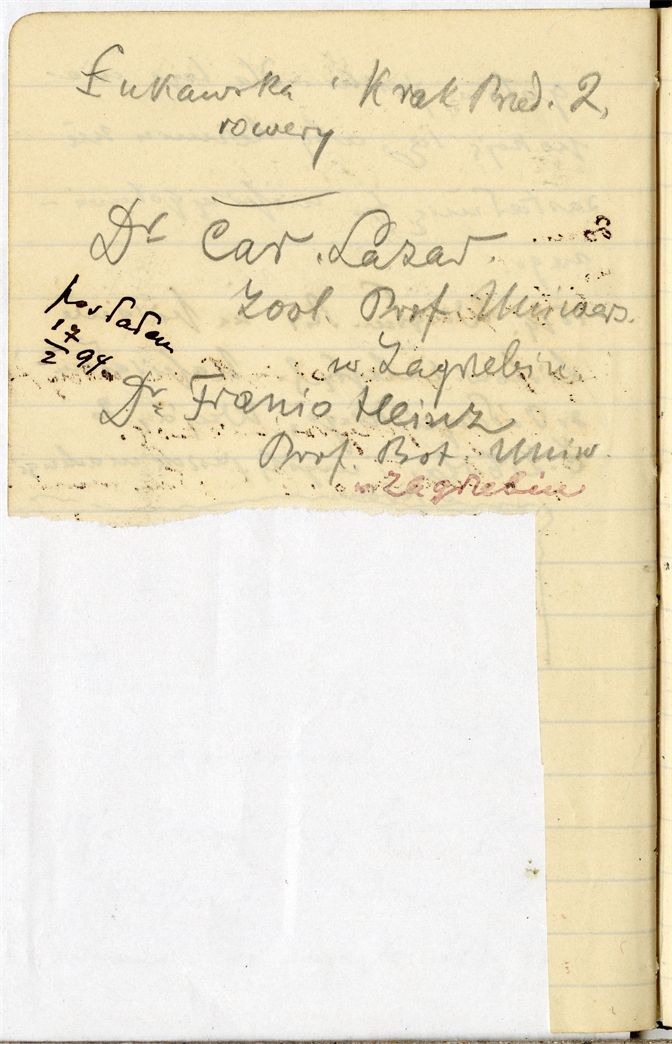 Łukawska Krak Przed. 2,
rowery
Dr Car. Lazar.
Zool. Prof. Univers.
w Zagrzebiu
posłałem
17/2 94.
Dr Franio Heinz
Prof. Bot. Uniw.
w Zagrzebiu